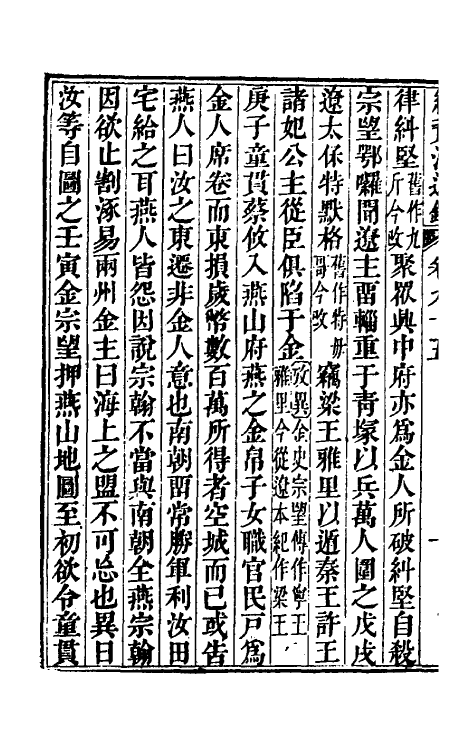 續資治通鑑 卷九十五
律糾堅舊作九斤今改聚眾興中府亦為金人所破糾堅自殺
宗望鄂囉聞遼主留輜重于靑塚以兵萬人圍之戊戌
遼太保特默格舊作特毋哥今改竊梁王雅里以遁秦王許王
諸妃公主從臣俱陷于金攷異金史宗望傳作寧王雅里今從遼本紀作梁王
庚子童貫蔡攸入燕山府燕之金帛子女職官民戶為
金人席卷而東損歲幣數百萬所得者空城而已或告
燕人曰汝之東遷非金人意也南朝留常勝軍利汝田
宅給之耳燕人皆怨因說宗翰不當與南朝全燕宗翰
因欲止割涿易兩州金主曰海上之盟不可忘也異日
汝等自圖之壬寅金宗望押燕山地圖至初欲令童貫